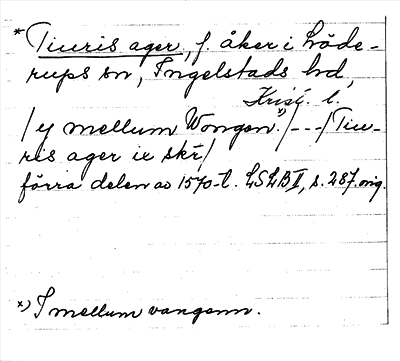 * Tiuris ager, f. åker i Löde-
rups sn, Ingelstads hd,
Krist. l.
/ y mellum Wongon. x) / - - - / Tiu-
ris ager ix skr /
förra delen av 1570-t. LSLB II, s. 287. orig.
x) I mellum vangenn.